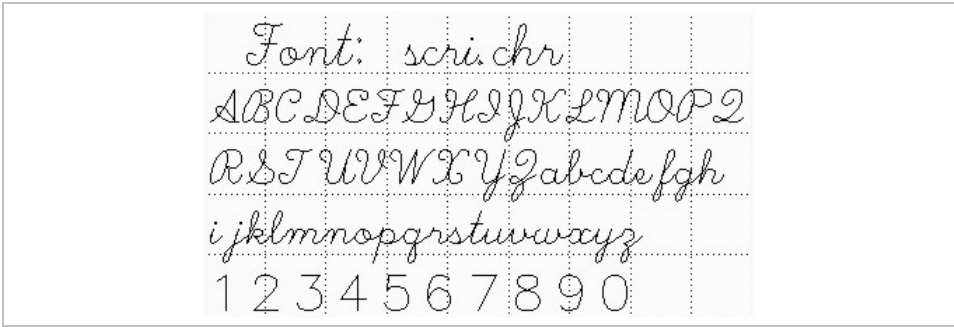 Font: scri.chr
ABCDEFGHIJKLMOPQ
RSTUVWXYZabcdefgh
ijklmnopqrstuvwxyz
1234567890